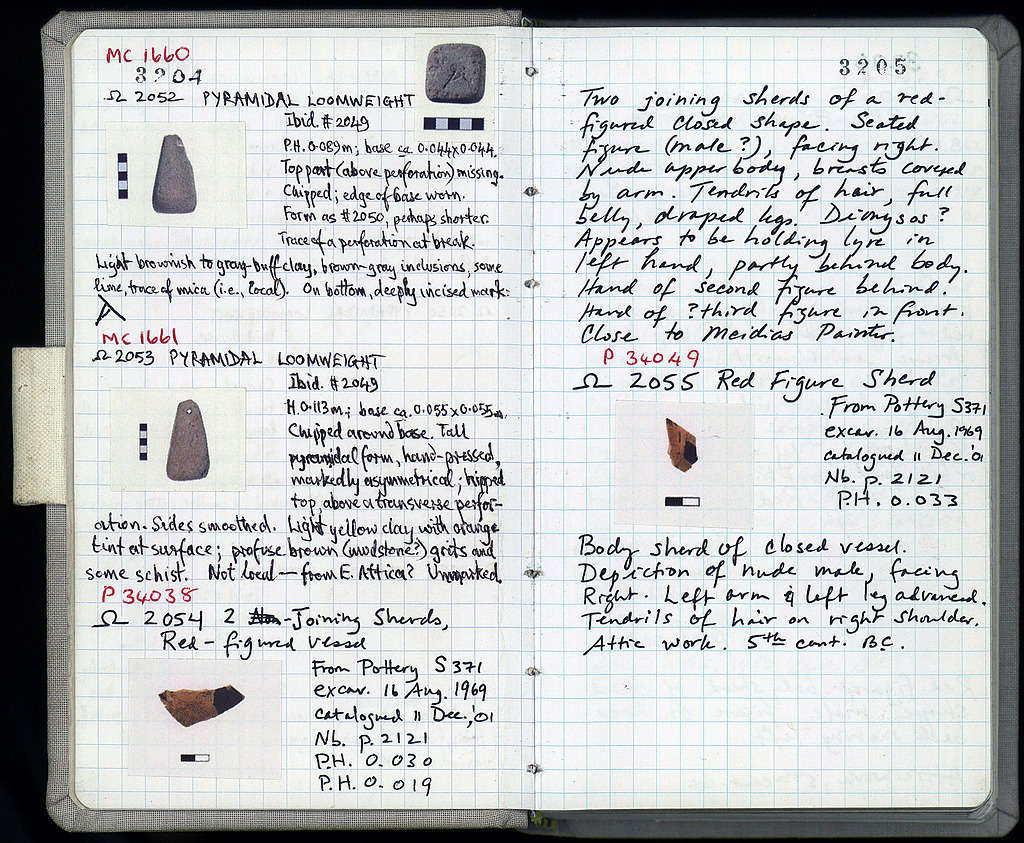 MC 1660
3204
Ω 2052 PYRAMIDAL LOOMWEIGHT
Ibid. # 2049
P.H. 0.089m; base ca. 0.044x0.044.
Top part (above perforation) missing.
Chipped; edge of base worn.
Form as #2050, perhaps shorter.
Trace of a perforation at break.
Light brownish to gray-buff clay, brown-gray inclusions, some
lime, trace of mica (i.e., local). On bottom, deeply incised mark:
MC 1661
Ω 2053 PYRAMIDAL LOOMWEIGHT
Ibid. # 2049
H. 0.113m.; base ca. 0.055x0.055m.
Chipped around base. Tall
pyramidal form, hand-pressed,
markedly asymmetrical; hipped
top, above a transverse perfor-
ation. Sides smoothed. Light yellow clay with orange
tint at surface; profuse brown (mudstone?) grits and
some schist. Not local — from E. Attica? Unmarked.
P 34038
Ω 2054 2 -Joining Sherds,
Red-figured vessel
From Pottery S 371
excav. 16 Aug. 1969
catalogued 11 Dec., '01
Nb. p. 2121
P.H. 0.030
P.H. 0.019
3205
Two joining sherds of a red-
figured closed shape. Seated
figure (male?), facing right.
Nude upper body, breasts covered
by arm. Tendrils of hair, full
belly, draped legs. Dionysos?
Appears to be holding lyre in
left hand, partly behind body.
Hand of second figure behind.
Hand of ?third figure in front.
Close to Meidias Painter.
P 34049
Ω 2055 Red Figure Sherd
From Pottery S371
excav. 16 Aug. 1969
catalogued 11 Dec. '01
Nb. p. 2121
P.H. 0.033
Body sherd of closed vessel.
Depiction of nude male, facing
Right. Left arm & left leg advanced.
Tendrils of hair on right shoulder.
Attic work. 5th cent. BC.